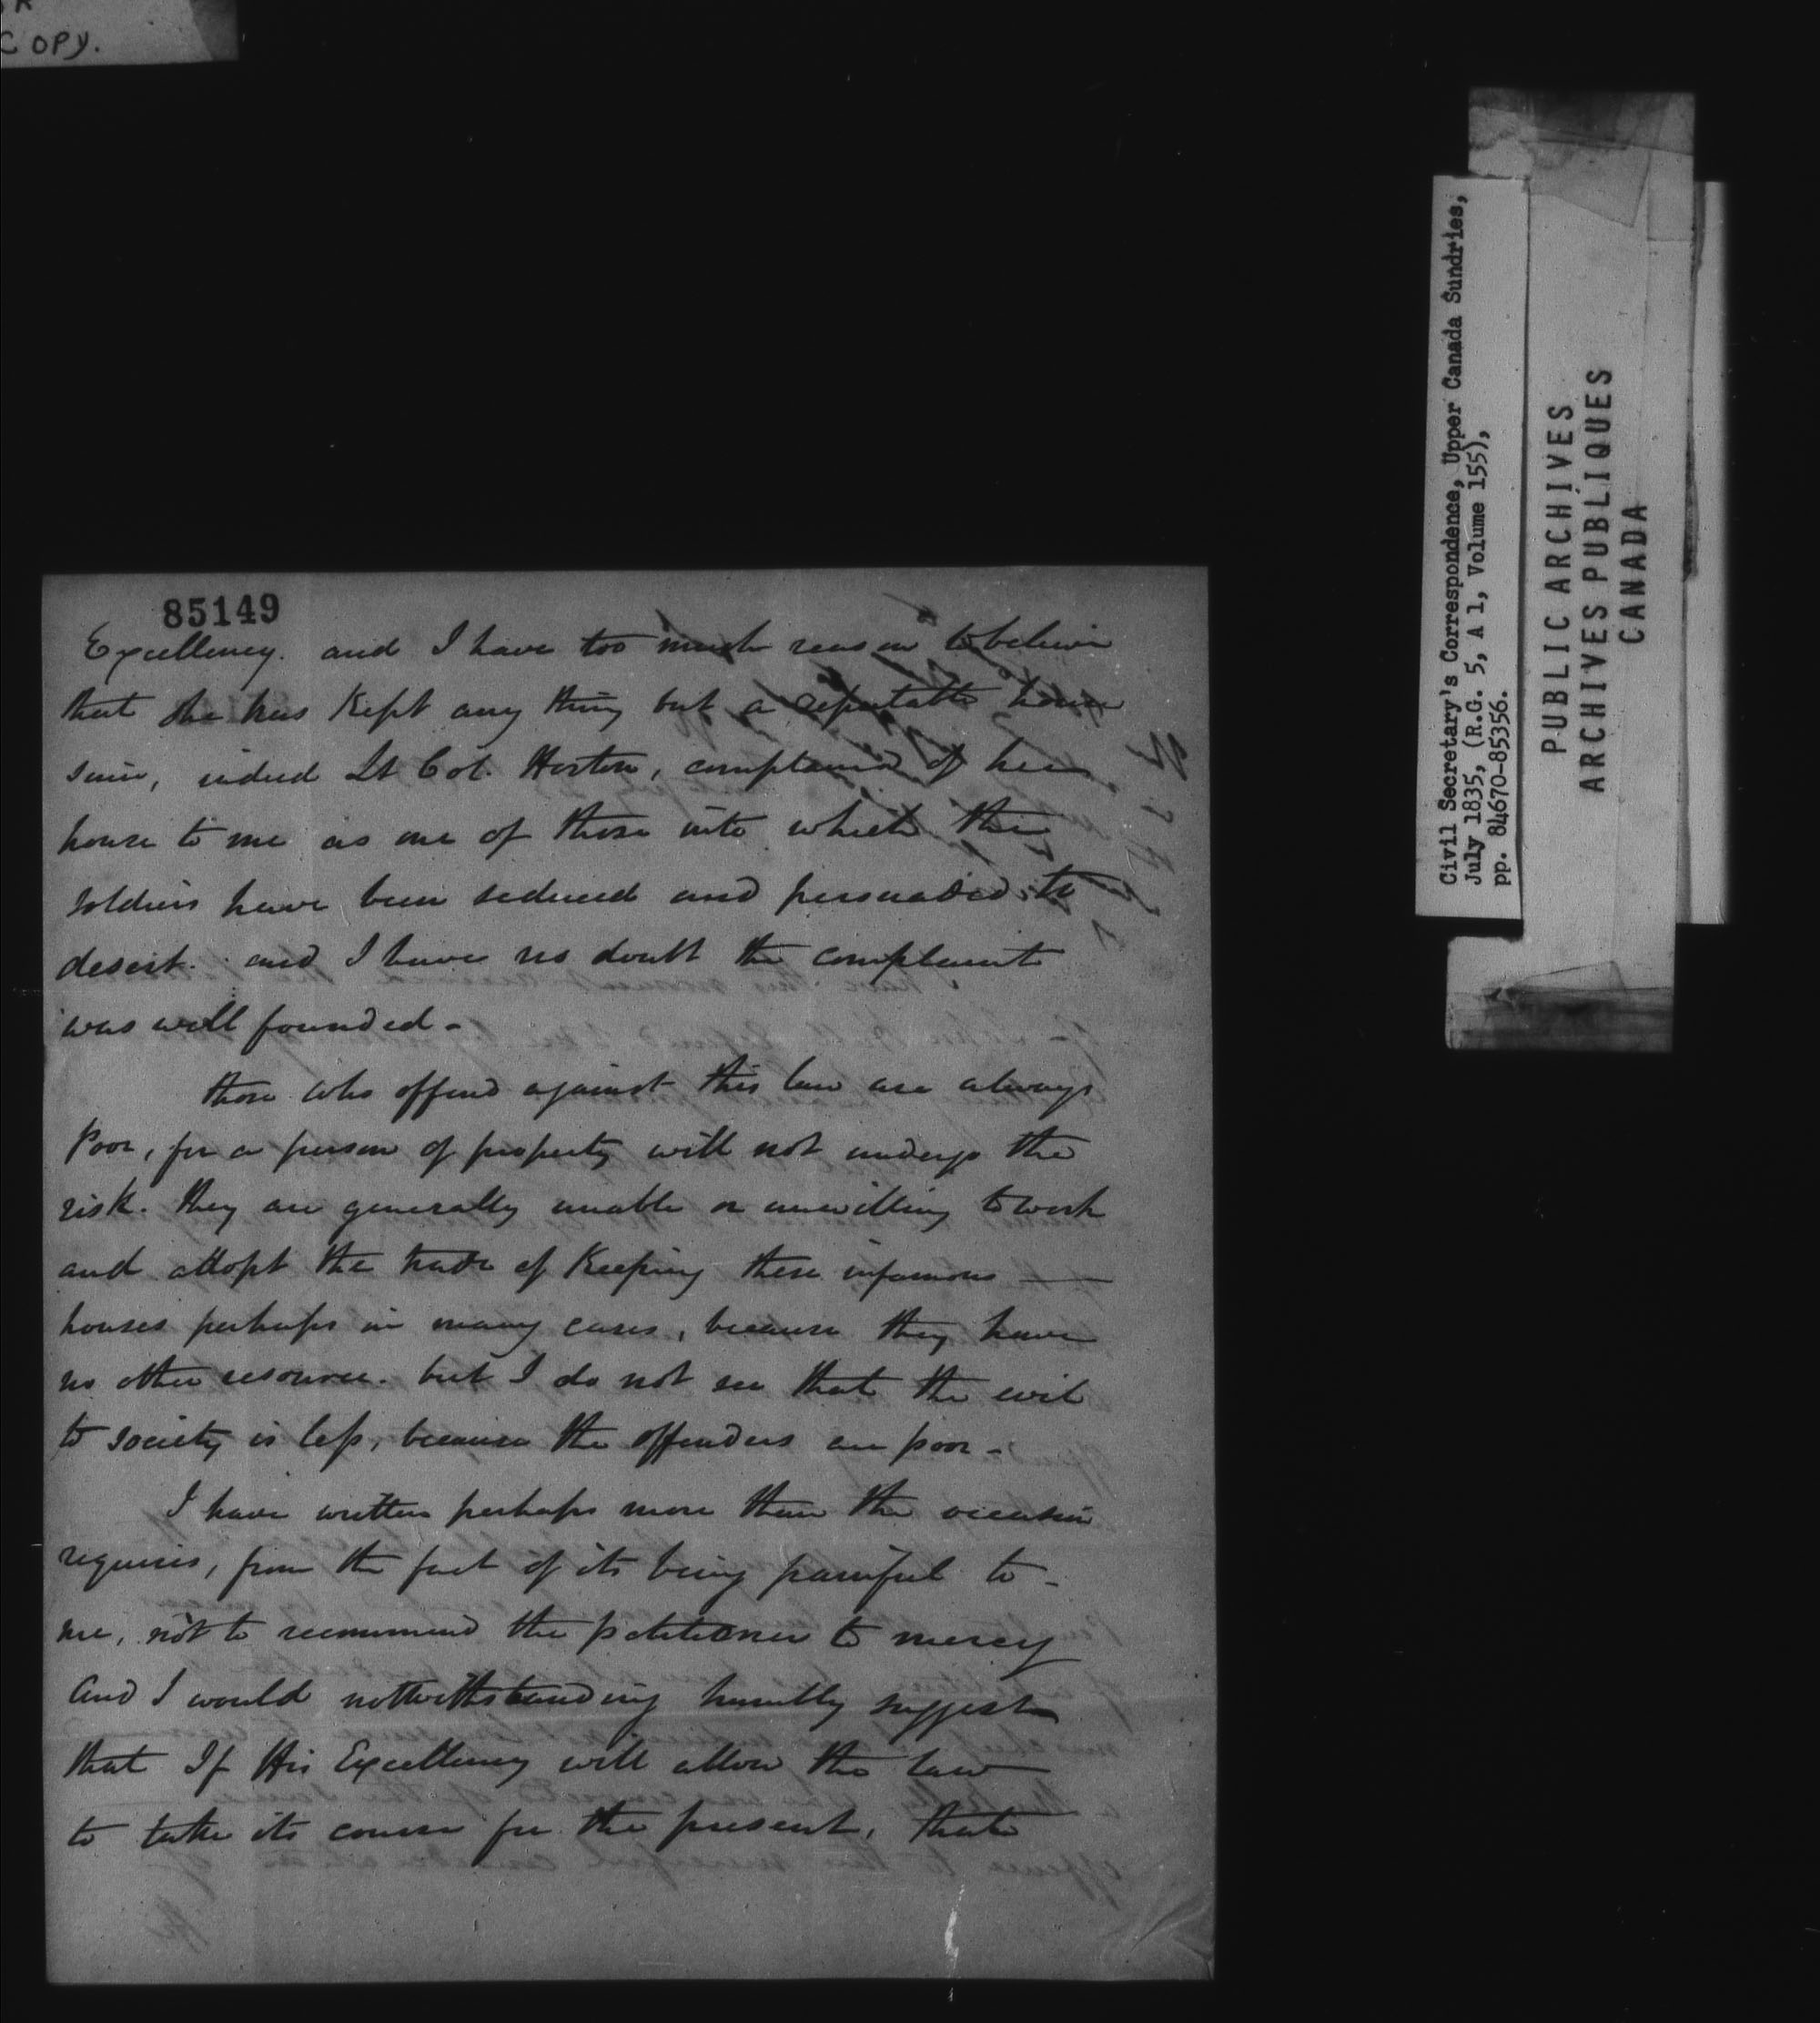 COPY.
85149
Excellency. and I have too much reason to believe
that she has Kept any thing but a reputable house
since, indeed Lt Col. Horton, complained of her
house to me as one of those into which the
soldiers have been seduced and persuaded to
desert. and I have no doubt the complaint
was well founded-
those who offend against this law are always
Poor, for a person of property will not undergo the
risk. they are generally unable or unwilling to work
and adopt the trade of Keeping these infamous
houses perhaps in many cases, because they have
no other resource. but I do not see that the evil
to society is less, because the offenders are poor-
I have written perhaps more than the occasion
requires, from the fact of its being painful to-
me, not to recommend the petitioner to mercy
And I would notwithstanding humbly suggest
that If His Excellency will allow the law
to take its course for the present, that
Civil Secretary's Correspondence, Upper Canada Sundries,
July 1835, (R.G. 5, A 1, Volume 155),
pp. 84670-85356.
PUBLIC ARCHIVES
ARCHIVES PUBLIQUES
CANADA